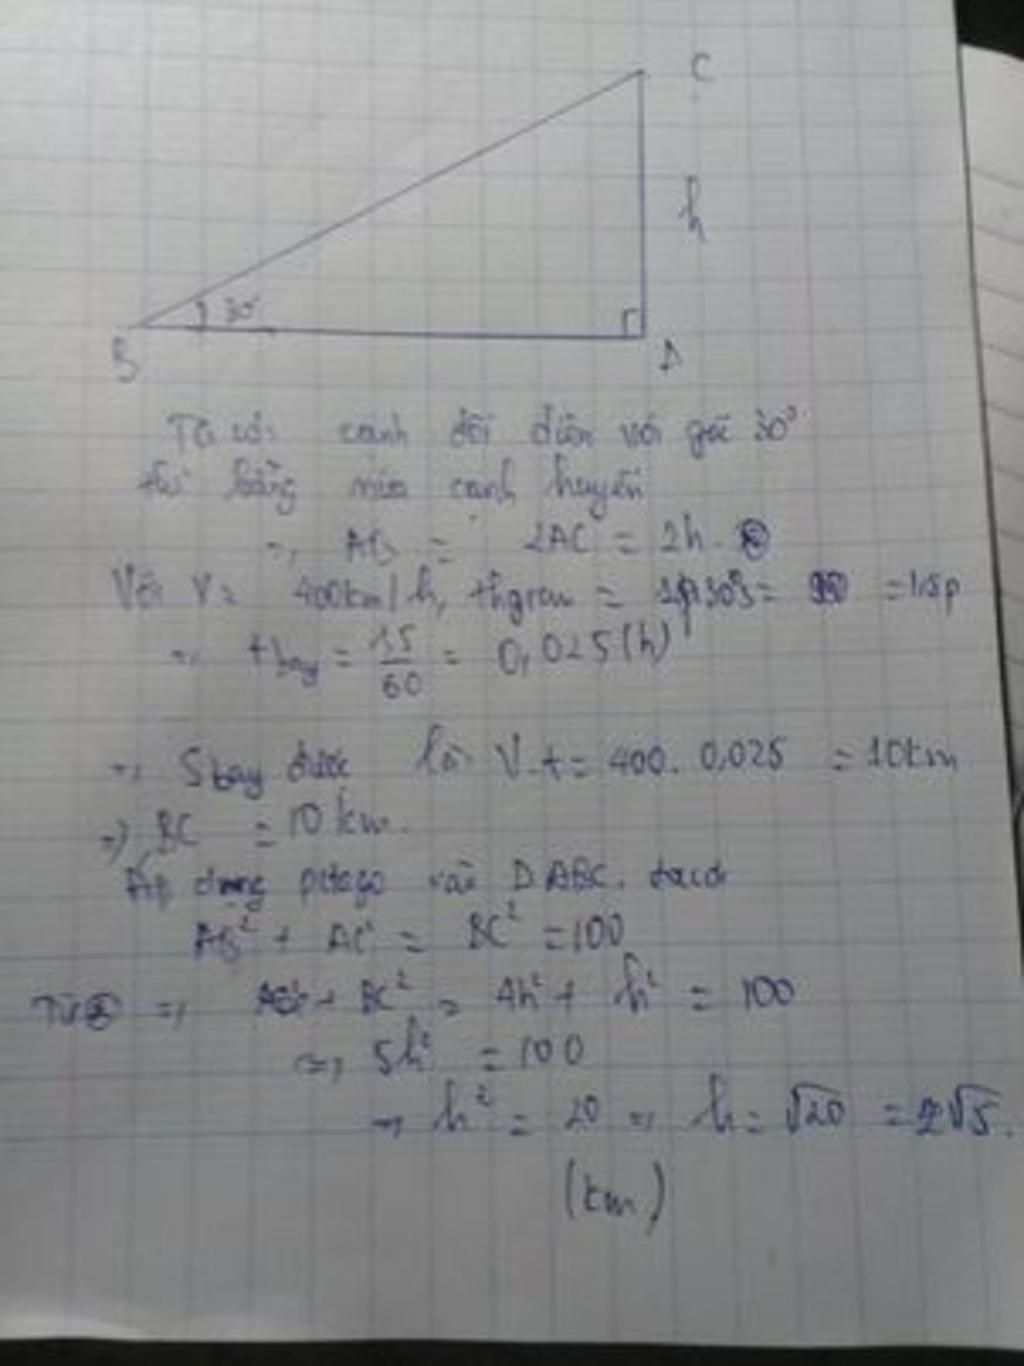 C
h
30°
B
A
Ta có: cạnh đối diện với góc 30°
thì bằng nửa cạnh huyền
=> AB = 2AC = 2h.
Với V = 400km/h, thgian = 1p30s = = 1,5p
=> t bay = 1,5/60 = 0,025 (h)
=> S bay được là: V.t = 400. 0,025 = 10km
=> BC = 10 km.
Áp dụng pitago vào ΔABC. ta có
AB² + AC² = BC² = 100
Từ => + BC² = 4h² + h² = 100
=> 5h² = 100
=> h² = 20 => h = √20 = 2√5.
(km)